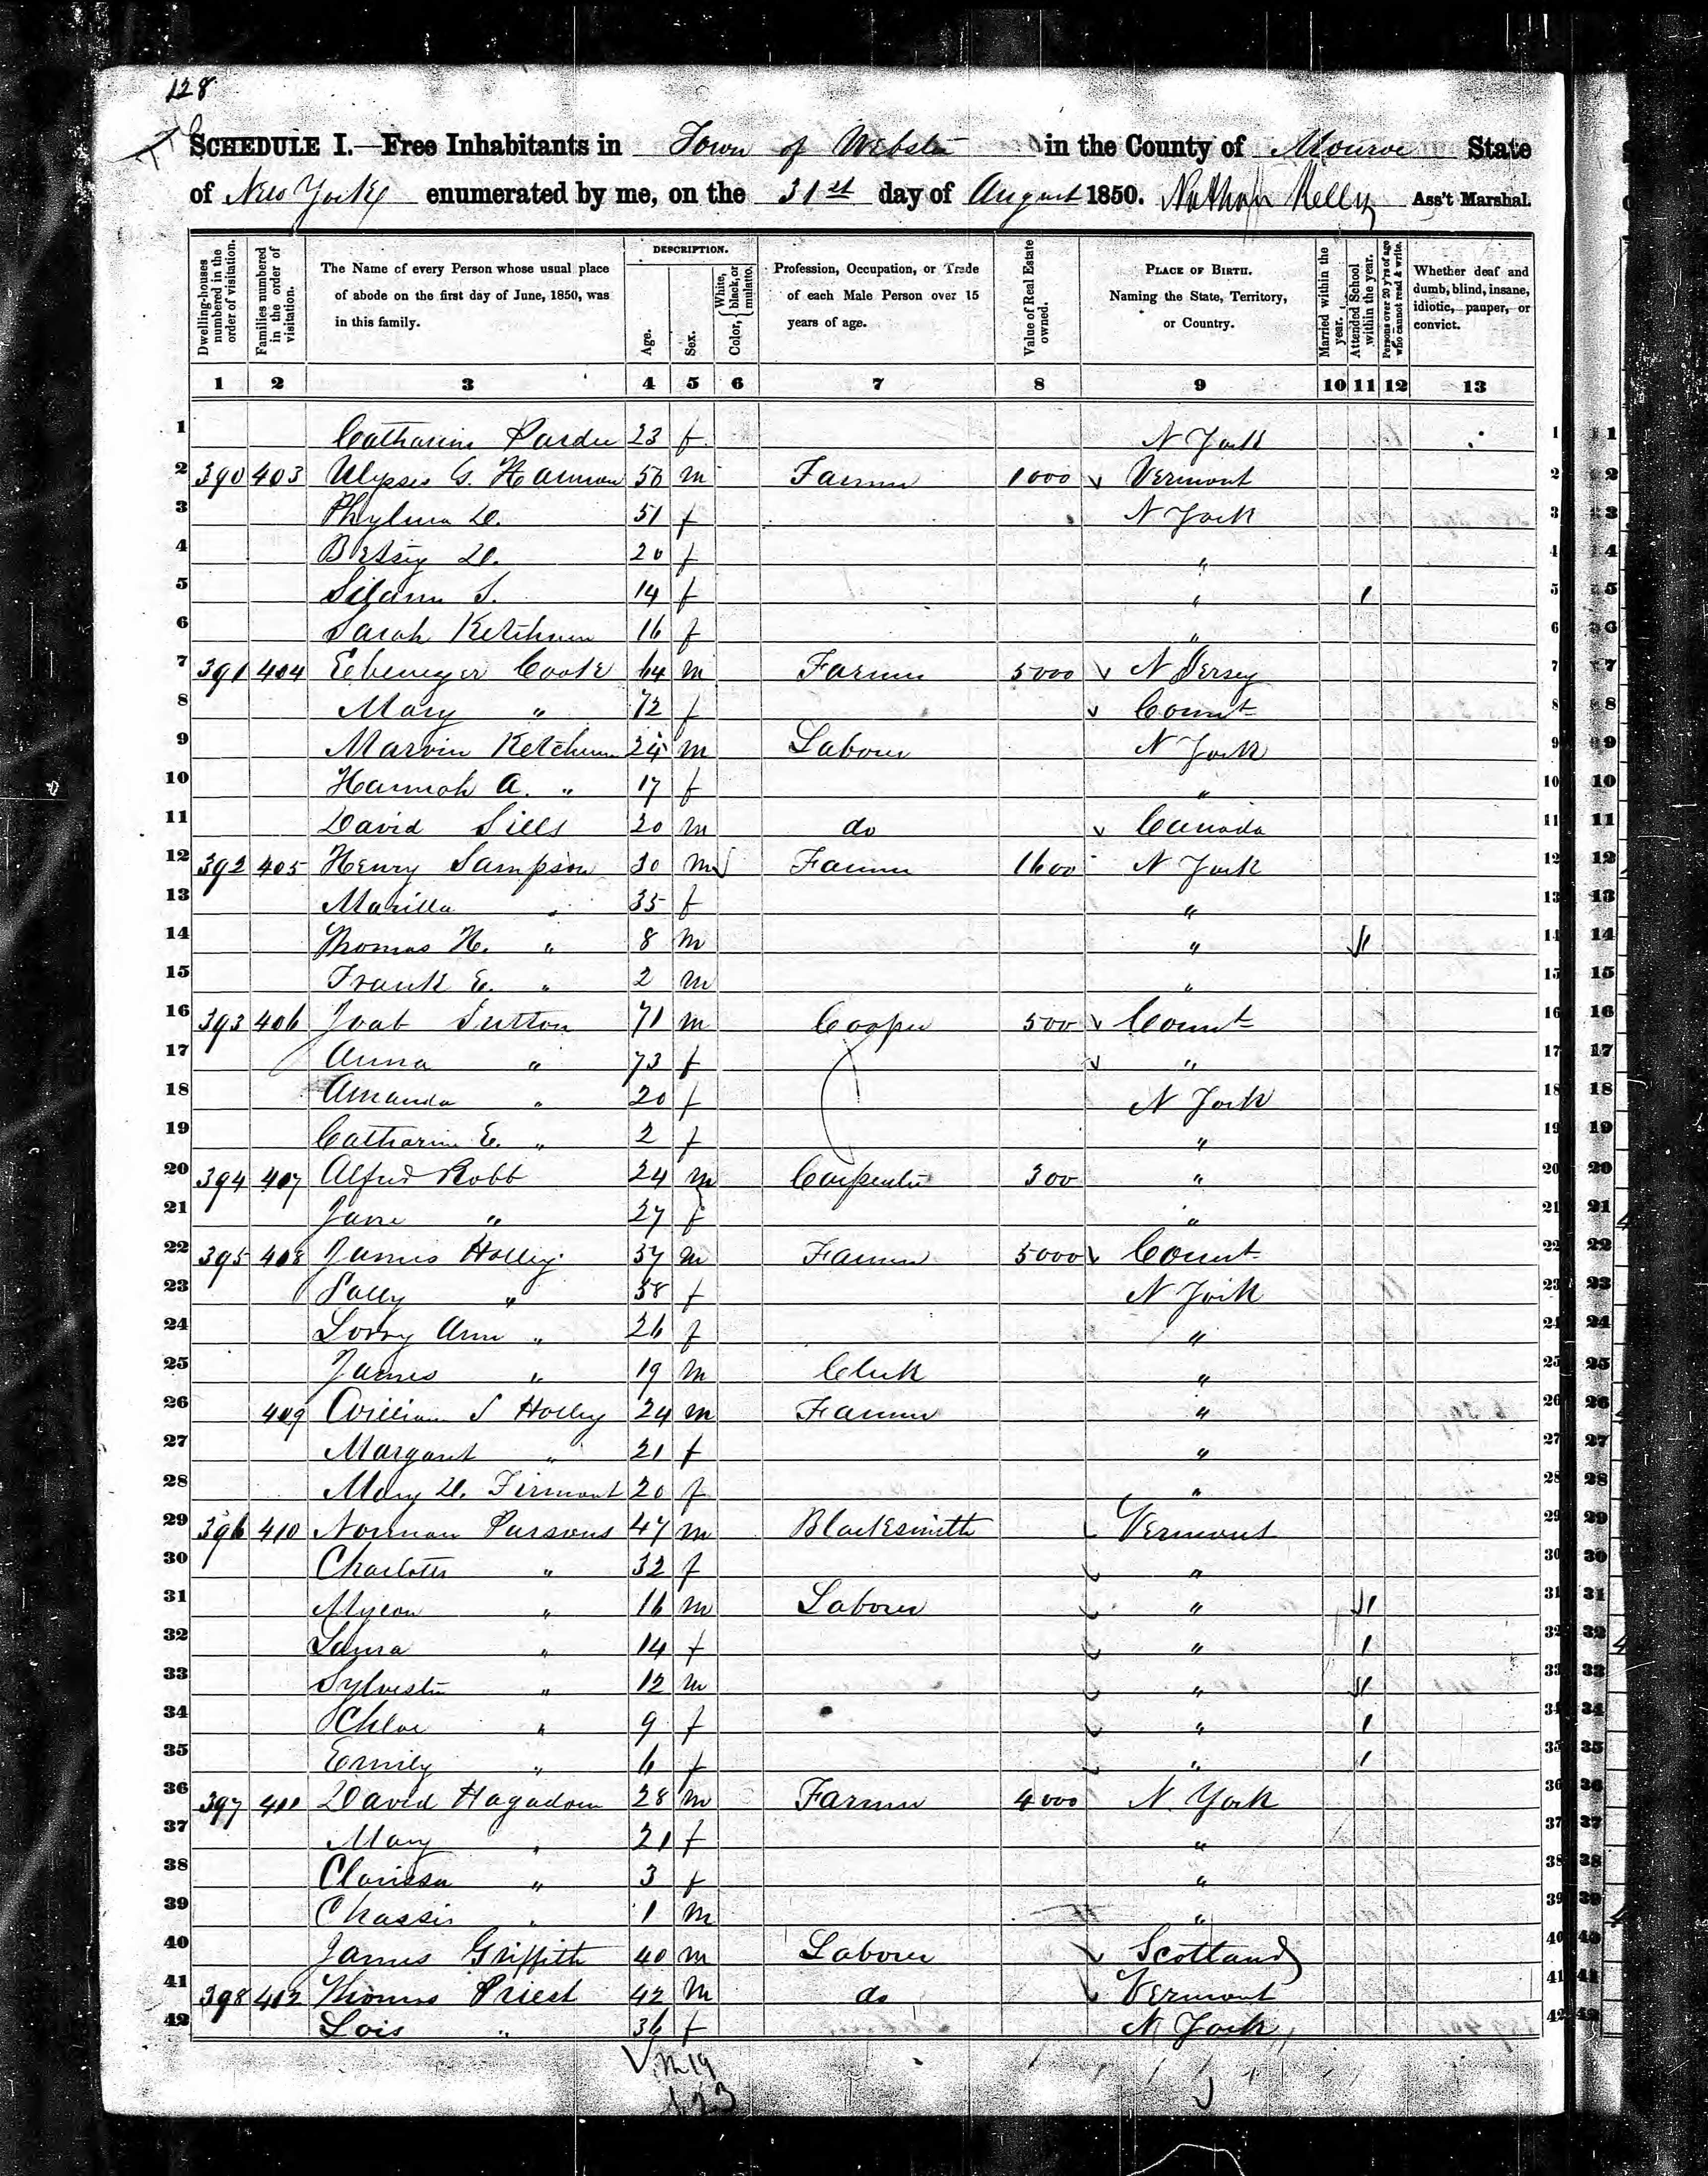 128
SCHEDULE I.—Free Inhabitants in Town of Webster in the County of Monroe State
of New York enumerated by me, on the 31st day of August 1850. Nathan Kelly Ass't Marshal.
Dwelling-houses numbered in the order of visitation.
Families numbered in the order of visitation.
The Name of every Person whose usual place of abode on the first day of June, 1850, was in this family.
DESCRIPTION.
Age.
Sex.
Color, { White, black, or mulatto.
Profession, Occupation, or Trade of each Male Person over 15 years of age.
Value of Real Estate owned.
PLACE OF BIRTH. Naming the State, Territory, or Country.
Married within the year.
Attended School within the year.
Persons over 20 y'rs of age who cannot read & write.
Whether deaf and dumb, blind, insane, idiotic, pauper, or convict.
1 2 3 4 5 6 7 8 9 10 11 12 13
1 Catharine Pardee 23 f N York 1
2 390 403 Ulysses G. Harmon 56 m Farmer 1000 Vermont 2
3 D. 51 f N York 3
4 Betsey D. 20 f " 4
5 S. 14 f " 1 5
6 Sarah Ketchum 16 f " 6
7 391 404 Ebenezer Cook 64 m Farmer 5000 N Jersey 7
8 Mary " 72 f Connt 8
9 Marvin Ketchum 24 m Labourer N York 9
10 Hannah A. " 17 f " 10
11 David Sills 20 m do Canada 11
12 392 405 Henry Sampson 30 m Farmer 1600 N York 12
13 Marilla " 35 f " 13
14 Thomas H. " 8 m " 1 14
15 Frank E. " 2 m " 15
16 393 406 Joab Sutton 71 m Cooper 500 Connt 16
17 Anna " 73 f " 17
18 Amanda " 20 f N York 18
19 Catharine E. " 2 f " 19
20 394 407 Alfred Robb 24 m Carpenter 300 " 20
21 Jane " 27 f " 21
22 395 408 James Holley 57 m Farmer 5000 Connt 22
23 Sally " 58 f N York 23
24 Ann " 26 f " 24
25 James " 19 m Clerk " 25
26 409 William S Holley 24 m Farmer " 26
27 Margaret " 21 f " 27
28 Mary D. 20 f " 28
29 396 410 Norman Parsons 47 m Blacksmith Vermont 29
30 Charlotte " 32 f " 30
31 Myron " 16 m Labourer " 1 31
32 Laura " 14 f " 1 32
33 Sylvester " 12 m " 1 33
34 Chloe " 9 f " 1 34
35 Emily " 6 f " 1 35
36 397 411 David Hagadorn 28 m Farmer 4000 N. York 36
37 Mary " 21 f " 37
38 Clarissa " 3 f " 38
39 " 1 m " 39
40 James Griffith 40 m Labourer Scotland 40
41 398 412 Thomas Priest 42 m do Vermont 41
42 Lois " 36 f N York 42
m 19
f 23